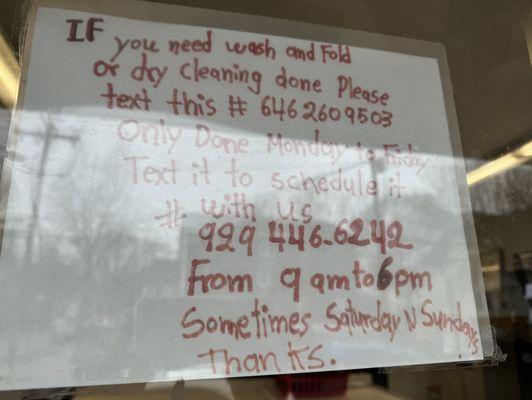 IF you need wash and Fold
or dry cleaning done Please
text this # 6462609503
Only Done Monday to Friday
Text it to schedule it
# with us
929 446-6242
From 9 am to 6pm
Sometimes Saturday N Sundays
Thanks.